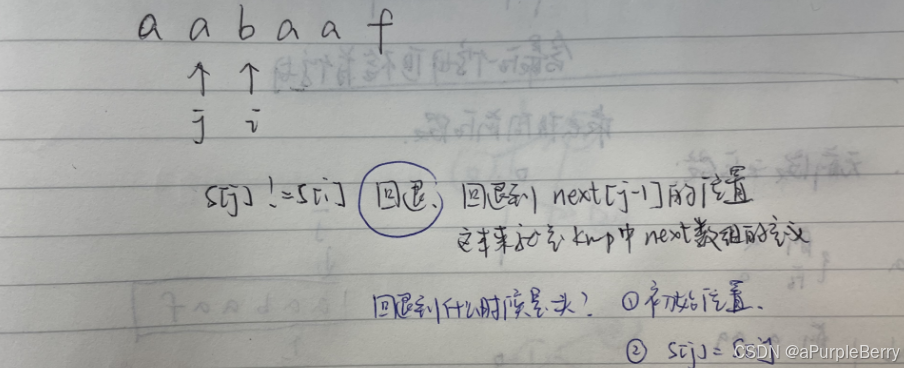 a a b a a f
j i
s[j] != s[i] 回退. 回退到 next[j-1]的位置
这本来就是 kmp中 next数组的定义
回退到什么时候是头? ① 初始位置.
② s[j] = s[i]
CSDN @aPurpleBerry